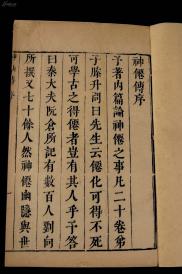 神僊傳序
予著內篇論神僊之事凡二十卷弟
子滕升問曰先生云僊化可得不死
可學古之得僊者豈有其人乎予答
曰秦大夫阮倉所記有數百人劉向
所撰又七十餘人然神僊幽隱與世